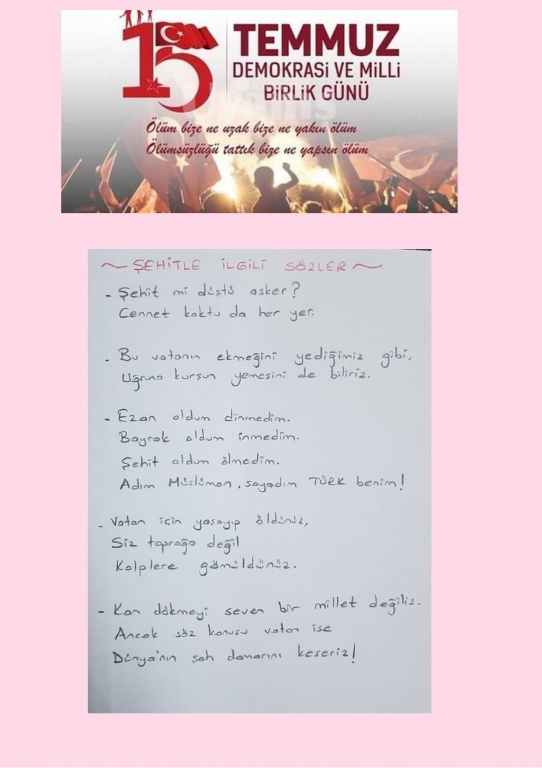 15 TEMMUZ
DEMOKRASİ VE MİLLİ
BİRLİK GÜNÜ
Ölüm bize ne uzak bize ne yakın ölüm
Ölümsüzlüğü tattık bize ne yapsın ölüm
~ ŞEHİTLE İLGİLİ SÖZLER ~
- Şehit mi düştü asker?
Cennet koktu da her yer.
- Bu vatanın ekmeğini yediğimiz gibi,
Uğruna kurşun yemesini de biliriz.
- Ezan oldum dinmedim.
Bayrak oldum inmedim.
Şehit oldum ölmedim.
Adım Müslüman, soyadım TÜRK benim!
- Vatan için yaşayıp öldünüz,
Siz toprağa değil
Kalplere gömüldünüz.
- Kan dökmeyi seven bir millet değiliz.
Ancak söz konusu vatan ise
Dünya'nın şah damarını keseriz!